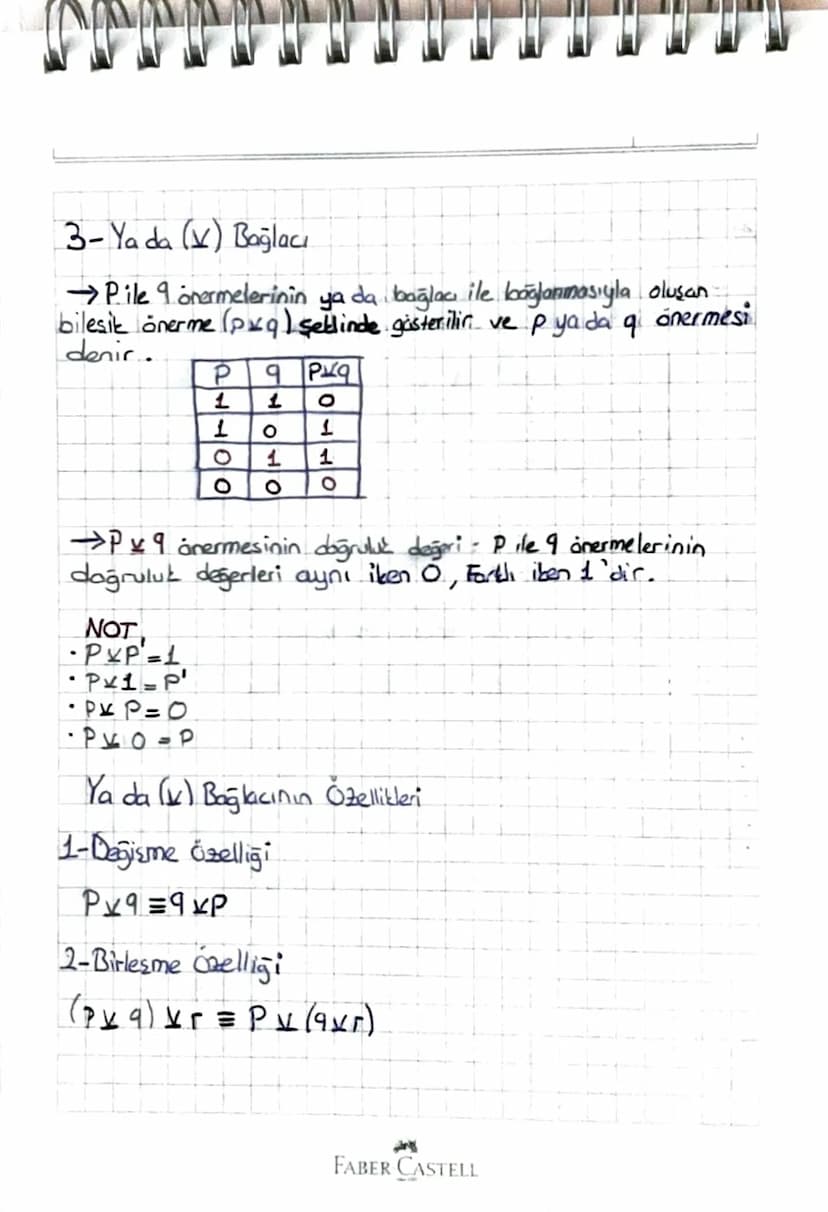 3- Ya da (⊻) Bağlacı
→ P ile q önermelerinin ya da bağlacı ile bağlanmasıyla oluşan
bileşik önerme (p⊻q) şeklinde gösterilir ve p ya da q önermesi
denir.
P q P⊻q
1 1 0
1 0 1
0 1 1
0 0 0
→ P ⊻ q önermesinin doğruluk değeri - P ile q önermelerinin
doğruluk değerleri aynı iken 0, Farklı iken 1'dir.
NOT,
• P⊻P'=1
• P⊻1=P'
• P⊻P=0
• P⊻0=P
Ya da (⊻) Bağlacının Özellikleri
1-Değişme Özelliği
P⊻q≡q⊻P
2-Birleşme Özelliği
(P⊻q)⊻r ≡ P⊻(q⊻r)
FABER CASTELL